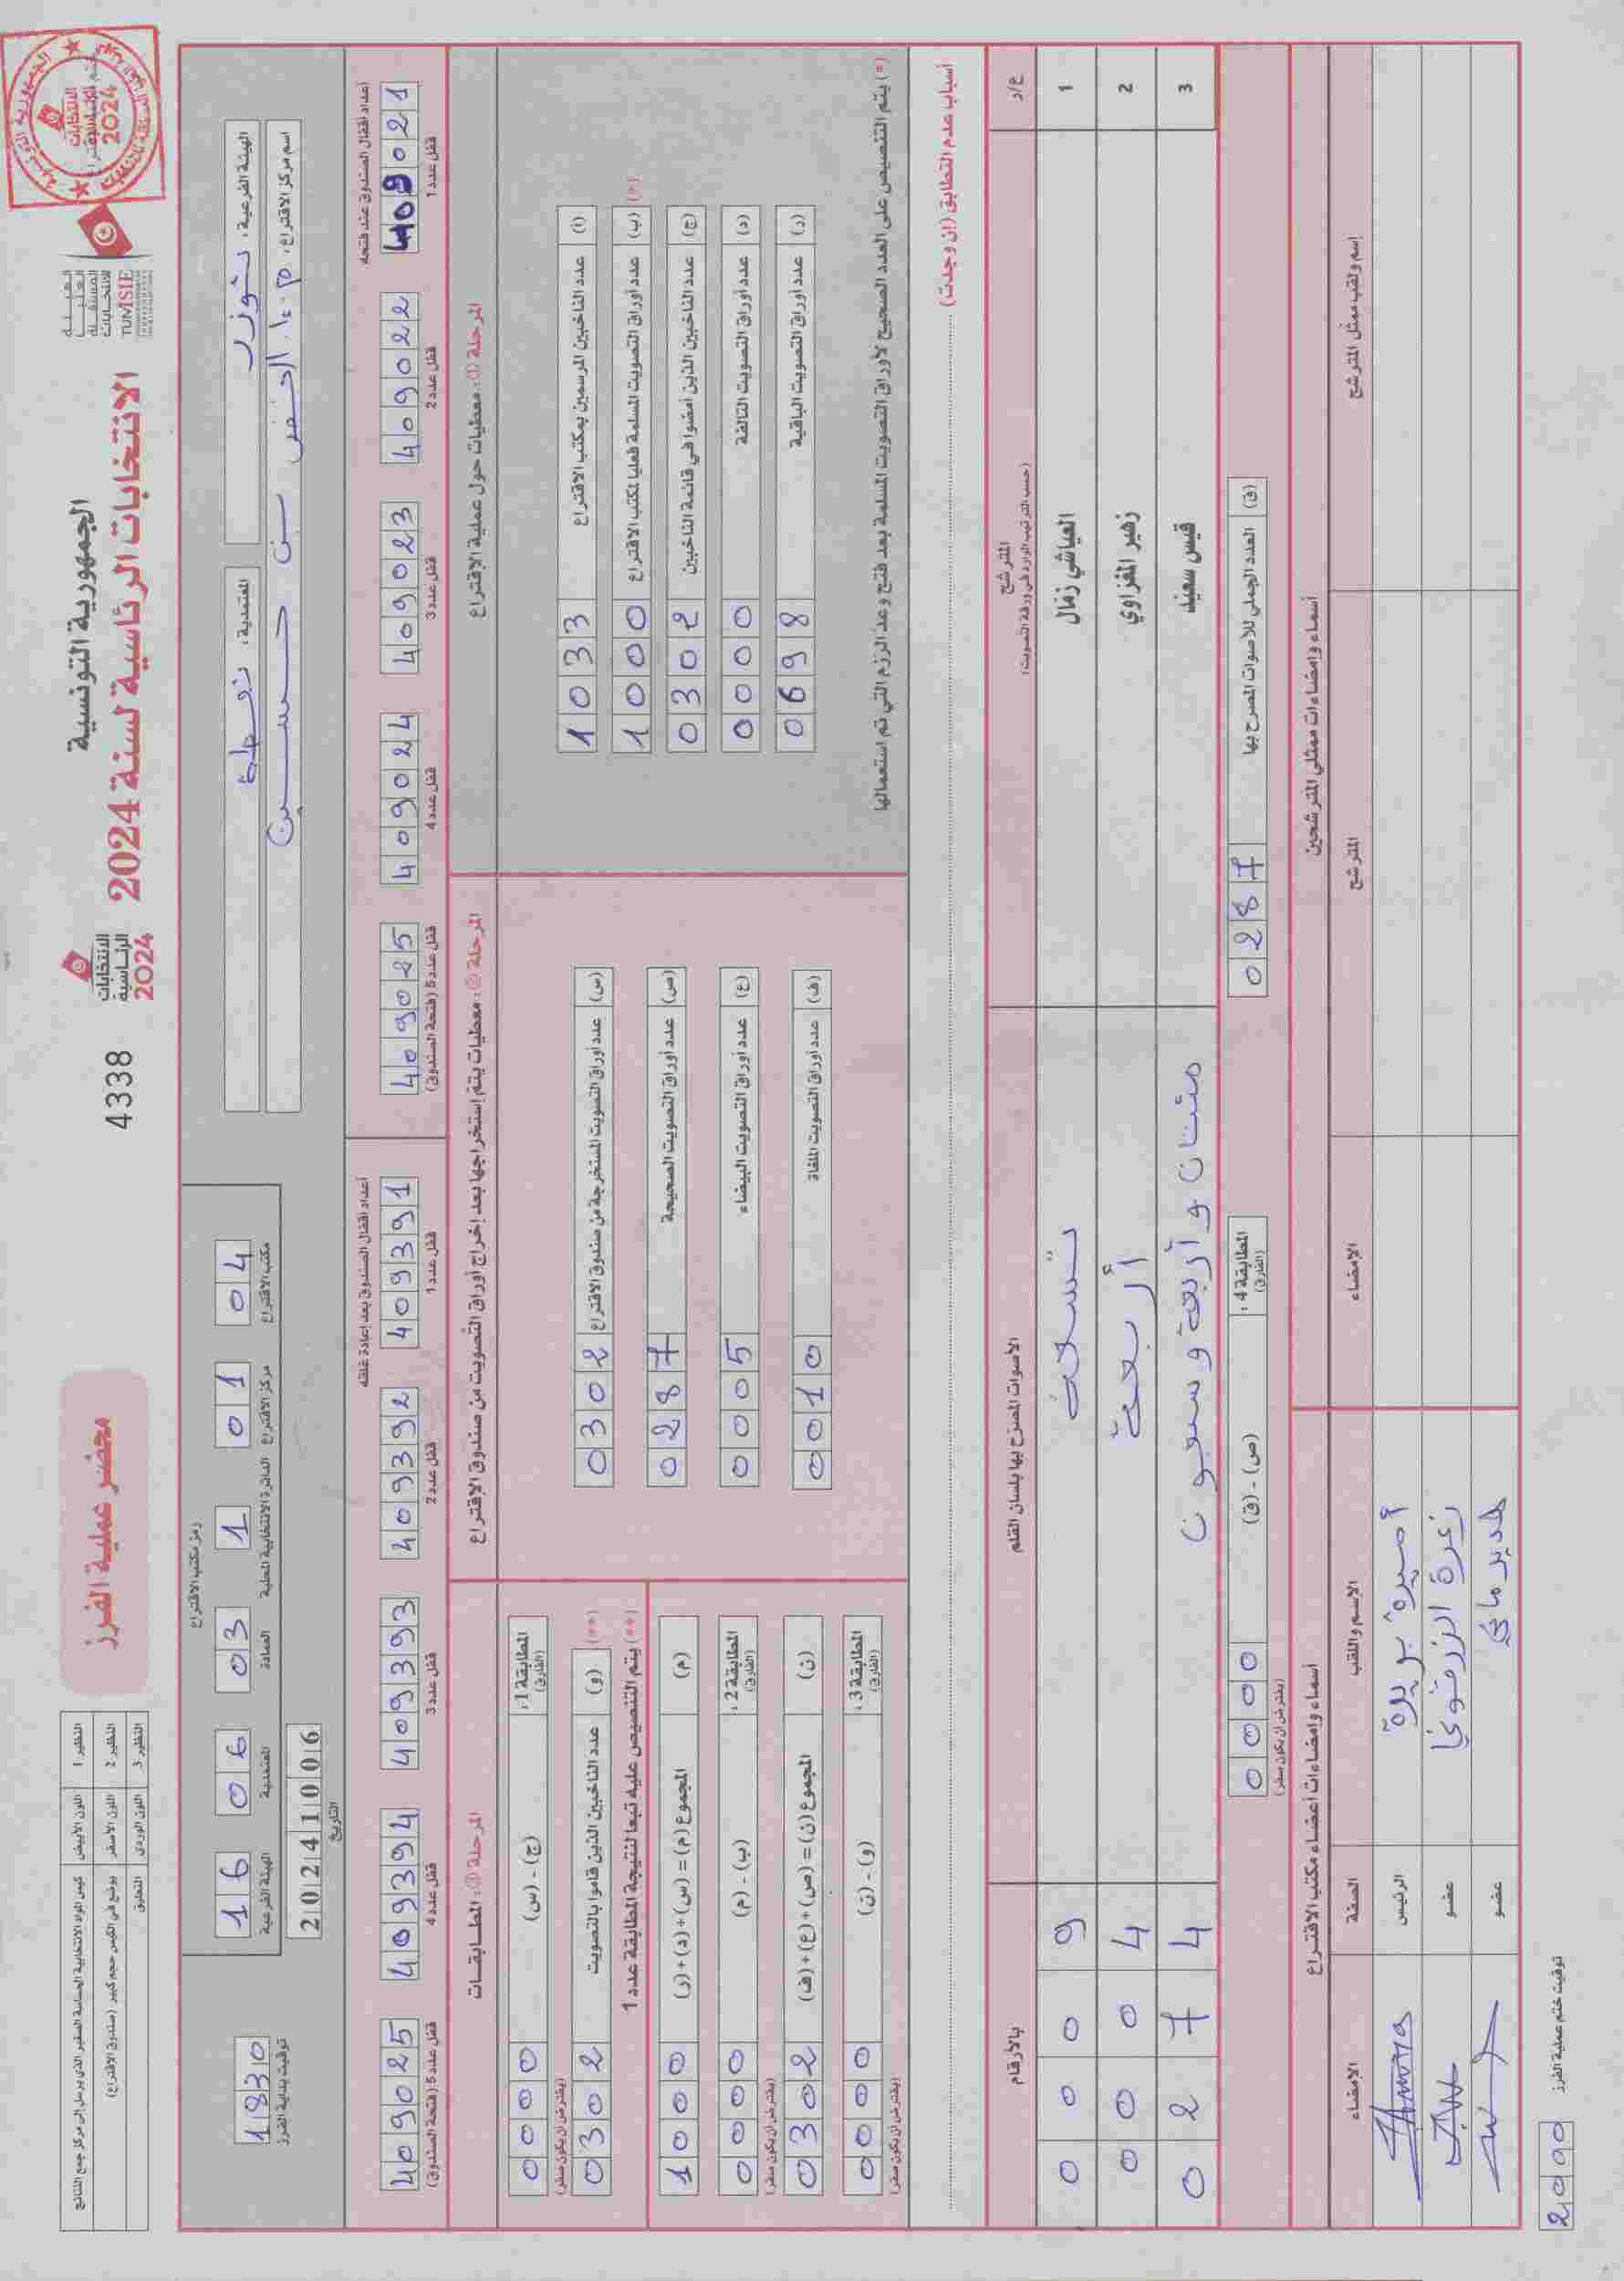 الجمهورية التونسية
الانتخابات الرئاسية لسنة 2024
الهيئة
العليا
المستقلة
للانتخابات
TUNISIE
الانتخابات
الرئاسية
2024
4338
محضر عملية الفرز
النظير 1 اللون الأبيض كيس المواد الانتخابية الحساسة الصغير الذي يرسل إلى مركز جمع النتائج
النظير 2 اللون الأصفر يوضع في الكيس حجم كبير (صندوق الاقتراع)
النظير 3 اللون الوردي التعليق
الهيئة الفرعية: توزر
المعتمدية: نفطة
اسم مركز الاقتراع: م.إ. الخضر بن حسين
رمز مكتب الاقتراع
16 06 03 1 01 04
الهيئة الفرعية المعتمدية العمادة الدائرة الانتخابية المحلية مركز الاقتراع مكتب الاقتراع
20241006
التاريخ
1830
توقيت بداية الفرز
أعداد أقفال الصندوق عند فتحه
409021 409022 409023 409024 409025
قفل عدد 1 قفل عدد 2 قفل عدد 3 قفل عدد 4 قفل عدد 5 (فتحة الصندوق)
أعداد أقفال الصندوق بعد إعادة غلقه
409391 409392 409393 409394 409025
قفل عدد 1 قفل عدد 2 قفل عدد 3 قفل عدد 4 قفل عدد 5 (فتحة الصندوق)
المرحلة ①: معطيات حول عملية الاقتراع
(أ) عدد الناخبين المرسمين بمكتب الاقتراع 1033
(*) (ب) عدد أوراق التصويت المسلمة فعليا لمكتب الاقتراع 1000
(ج) عدد الناخبين الذين أمضوا في قائمة الناخبين 0302
(د) عدد أوراق التصويت التالفة 0000
(ر) عدد أوراق التصويت الباقية 0698
(*) يتم التنصيص على العدد الصحيح لأوراق التصويت المسلمة بعد فتح وعد الرزم التي تم استعمالها
المرحلة ②: معطيات يتم استخراجها بعد إخراج أوراق التصويت من صندوق الاقتراع
(س) عدد أوراق التصويت المستخرجة من صندوق الاقتراع 0302
(ص) عدد أوراق التصويت الصحيحة 0287
(ع) عدد أوراق التصويت البيضاء 0005
(ف) عدد أوراق التصويت الملغاة 0010
المرحلة ③: المطابقات
المطابقة 1: (الفارق) (ج) - (س) 0000
(يفترض أن يكون صفر)
(**) (و) عدد الناخبين الذين قاموا بالتصويت 0302
(**) يتم التنصيص عليه تبعا لنتيجة المطابقة عدد 1
(م) المجموع (م) = (س) + (د) + (ر) 1000
المطابقة 2: (الفارق) (ب) - (م) 0000
(يفترض أن يكون صفر)
(ن) المجموع (ن) = (ص) + (ع) + (ف) 0302
المطابقة 3: (الفارق) (و) - (ن) 0000
(يفترض أن يكون صفر)
أسباب عدم التطابق (إن وجدت)
ع/ر المترشح (حسب الترتيب الوارد في ورقة التصويت) الأصوات المصرح بها بلسان القلم بالأرقام
1 العياشي زمال تسعة 0009
2 زهير المغزاوي أربعة 0004
3 قيس سعيد مئتان وأربعة وسبعون 0274
(ق) العدد الجملي للأصوات المصرح بها 0287
المطابقة 4: (الفارق) (ص) - (ق) 0000
(يفترض أن يكون صفر)
أسماء وإمضاءات ممثلي المترشحين
أسماء وإمضاءات أعضاء مكتب الاقتراع
إسم ولقب ممثل المترشح المترشح الإمضاء الإسم واللقب الصفة الإمضاء
أميرة بريرة الرئيس
عضو
عضو
توقيت ختم عملية الفرز